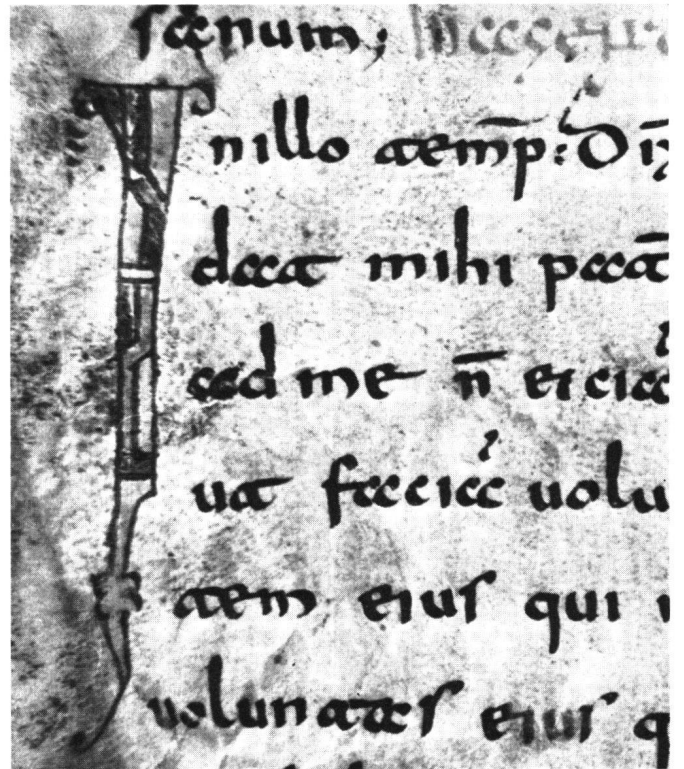 sanum;
Inillo temp̄: Dix̄
dat mihi pat̄
ad me n̄ eicia
ut facia uolu
tem eius qui
uoluntas eius q